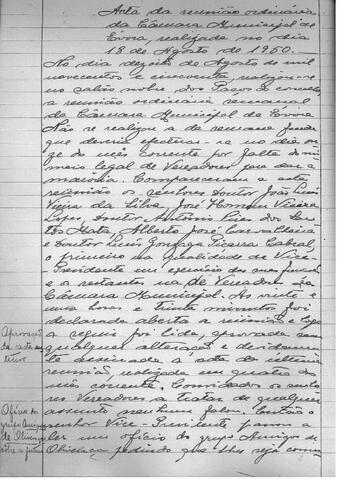 Acta da reunião ordinária
da Câmara Municipal de
Évora realizada no dia
18 de Agosto de 1950.
No dia dezoito de Agosto de mil
novecentos e cincoenta realizou-se
no salão nobre dos Paços do concelho
a reunião ordinária semanal
da Câmara Municipal de Évora
Não se realizou a da semana finda
que deveria efectuar-se no dia on-
ze do mês corrente por falta de nú-
mero legal de Vereadores para dar a
maioria. Compareceram a esta
reunião os senhores Doutor João Luis
Vieira da Silva, José Homem Vieira
Lopes, Doutor António Pires dos
Mata, Alberto José Carvalheira
e Doutor Luis Gonzaga Cabral,
o primeiro na qualidade de Vice-
Presidente em exercício das suas funções
e os restantes na de Vereadores da
Câmara Municipal. Às vinte e
uma horas e trinta minutos foi
declarada aberta a reunião e logo
a seguir foi lida, aprovada sem
qualquer alteração e devidamen-
te assinada a acta da última
reunião, realizada em quatro do
mês corrente. Convidados os senho-
res Vereadores a tratar de qualquer
assunto nenhum falou. Então o
senhor Vice-Presidente passou a
ler um ofício do grupo Amigos de
pedindo que lhes seja
Aprovação
da acta an-
terior
Ofício do
grupo Amigos
de